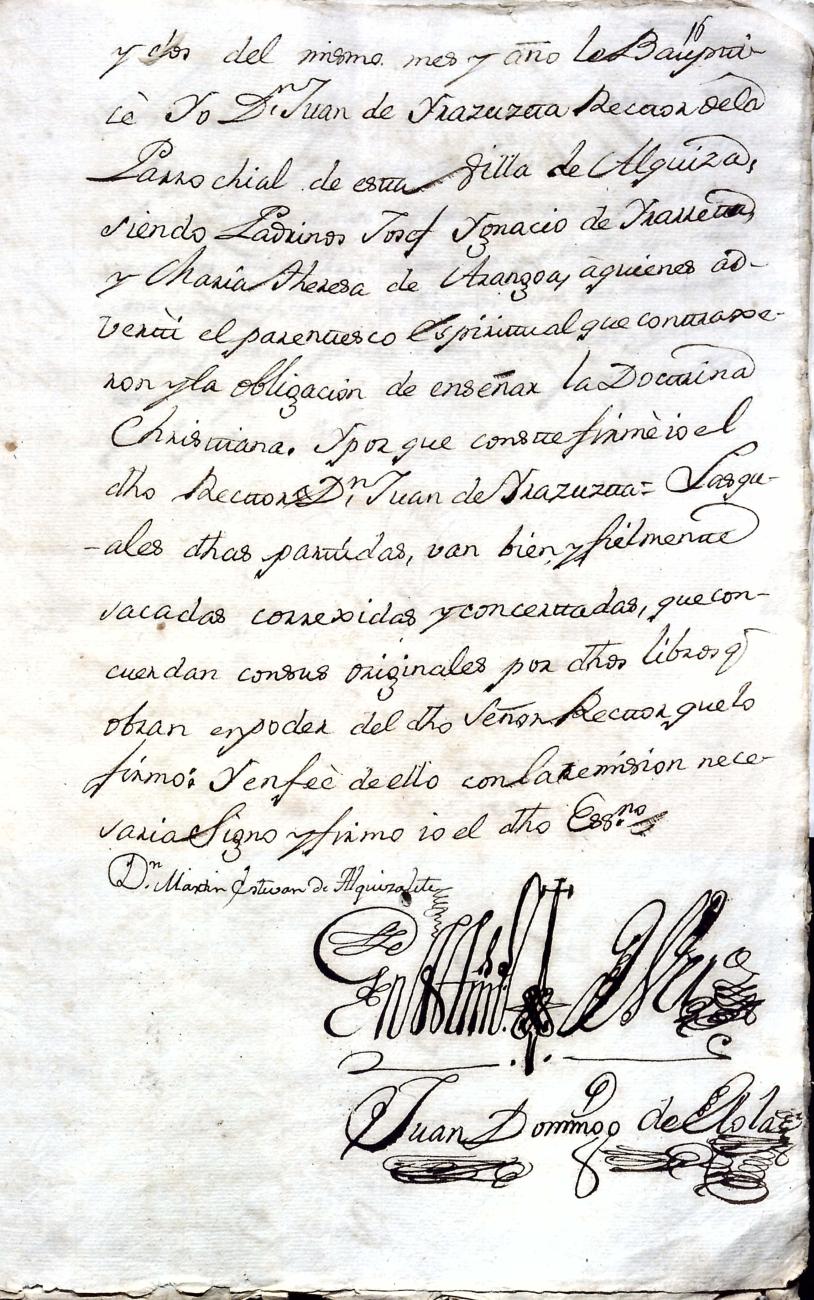 16
y dos del mismo mes y año le Bauptti-
cè Yo Dn. Juan de Yrazuztta Recttor dela
Parrochial de estta Villa de Alquiza,
siendo Padrinos Josef Ygnacio de Yrarretta,
y Maria Theresa de Aranzoa, àquienes ad-
verttì el parenttesco Espirittual que conttraxe-
ron y la obligacion de enseñar la Docttrina
Christtiana. Y por que constte firmè io el
dho Recttor Dn. Juan de Yrazuztta= Lasqu-
-ales dhas parttidas, van bien, y fielmentte
sacadas correxidas y concerttadas, que con-
cuerdan consus originales por dhos libros q
obran enpoder del dho Señor Recttor, que lo
firmo: Y enfeè de ello con la remision nece-
saria Signo y firmo io el dho Essno.
Dn. Martin Estevan de Alquizalete
En testtimo de Ver
Juan Domingo de